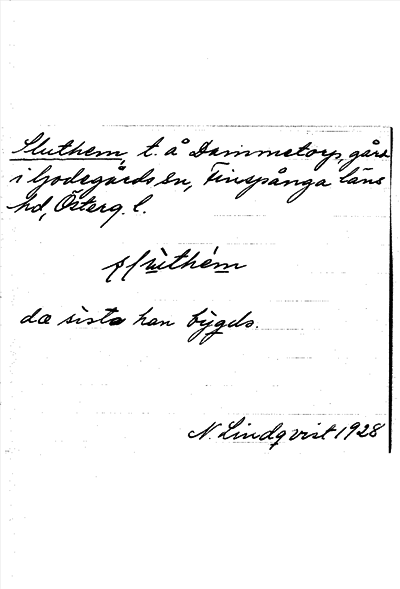 Sluthem, t. å Dammetorp, gård
i Godegårds sn, Finspånga läns
hd, Österg. l.
slùthém
dæ sista han bygds.
N. Lindqvist 1928